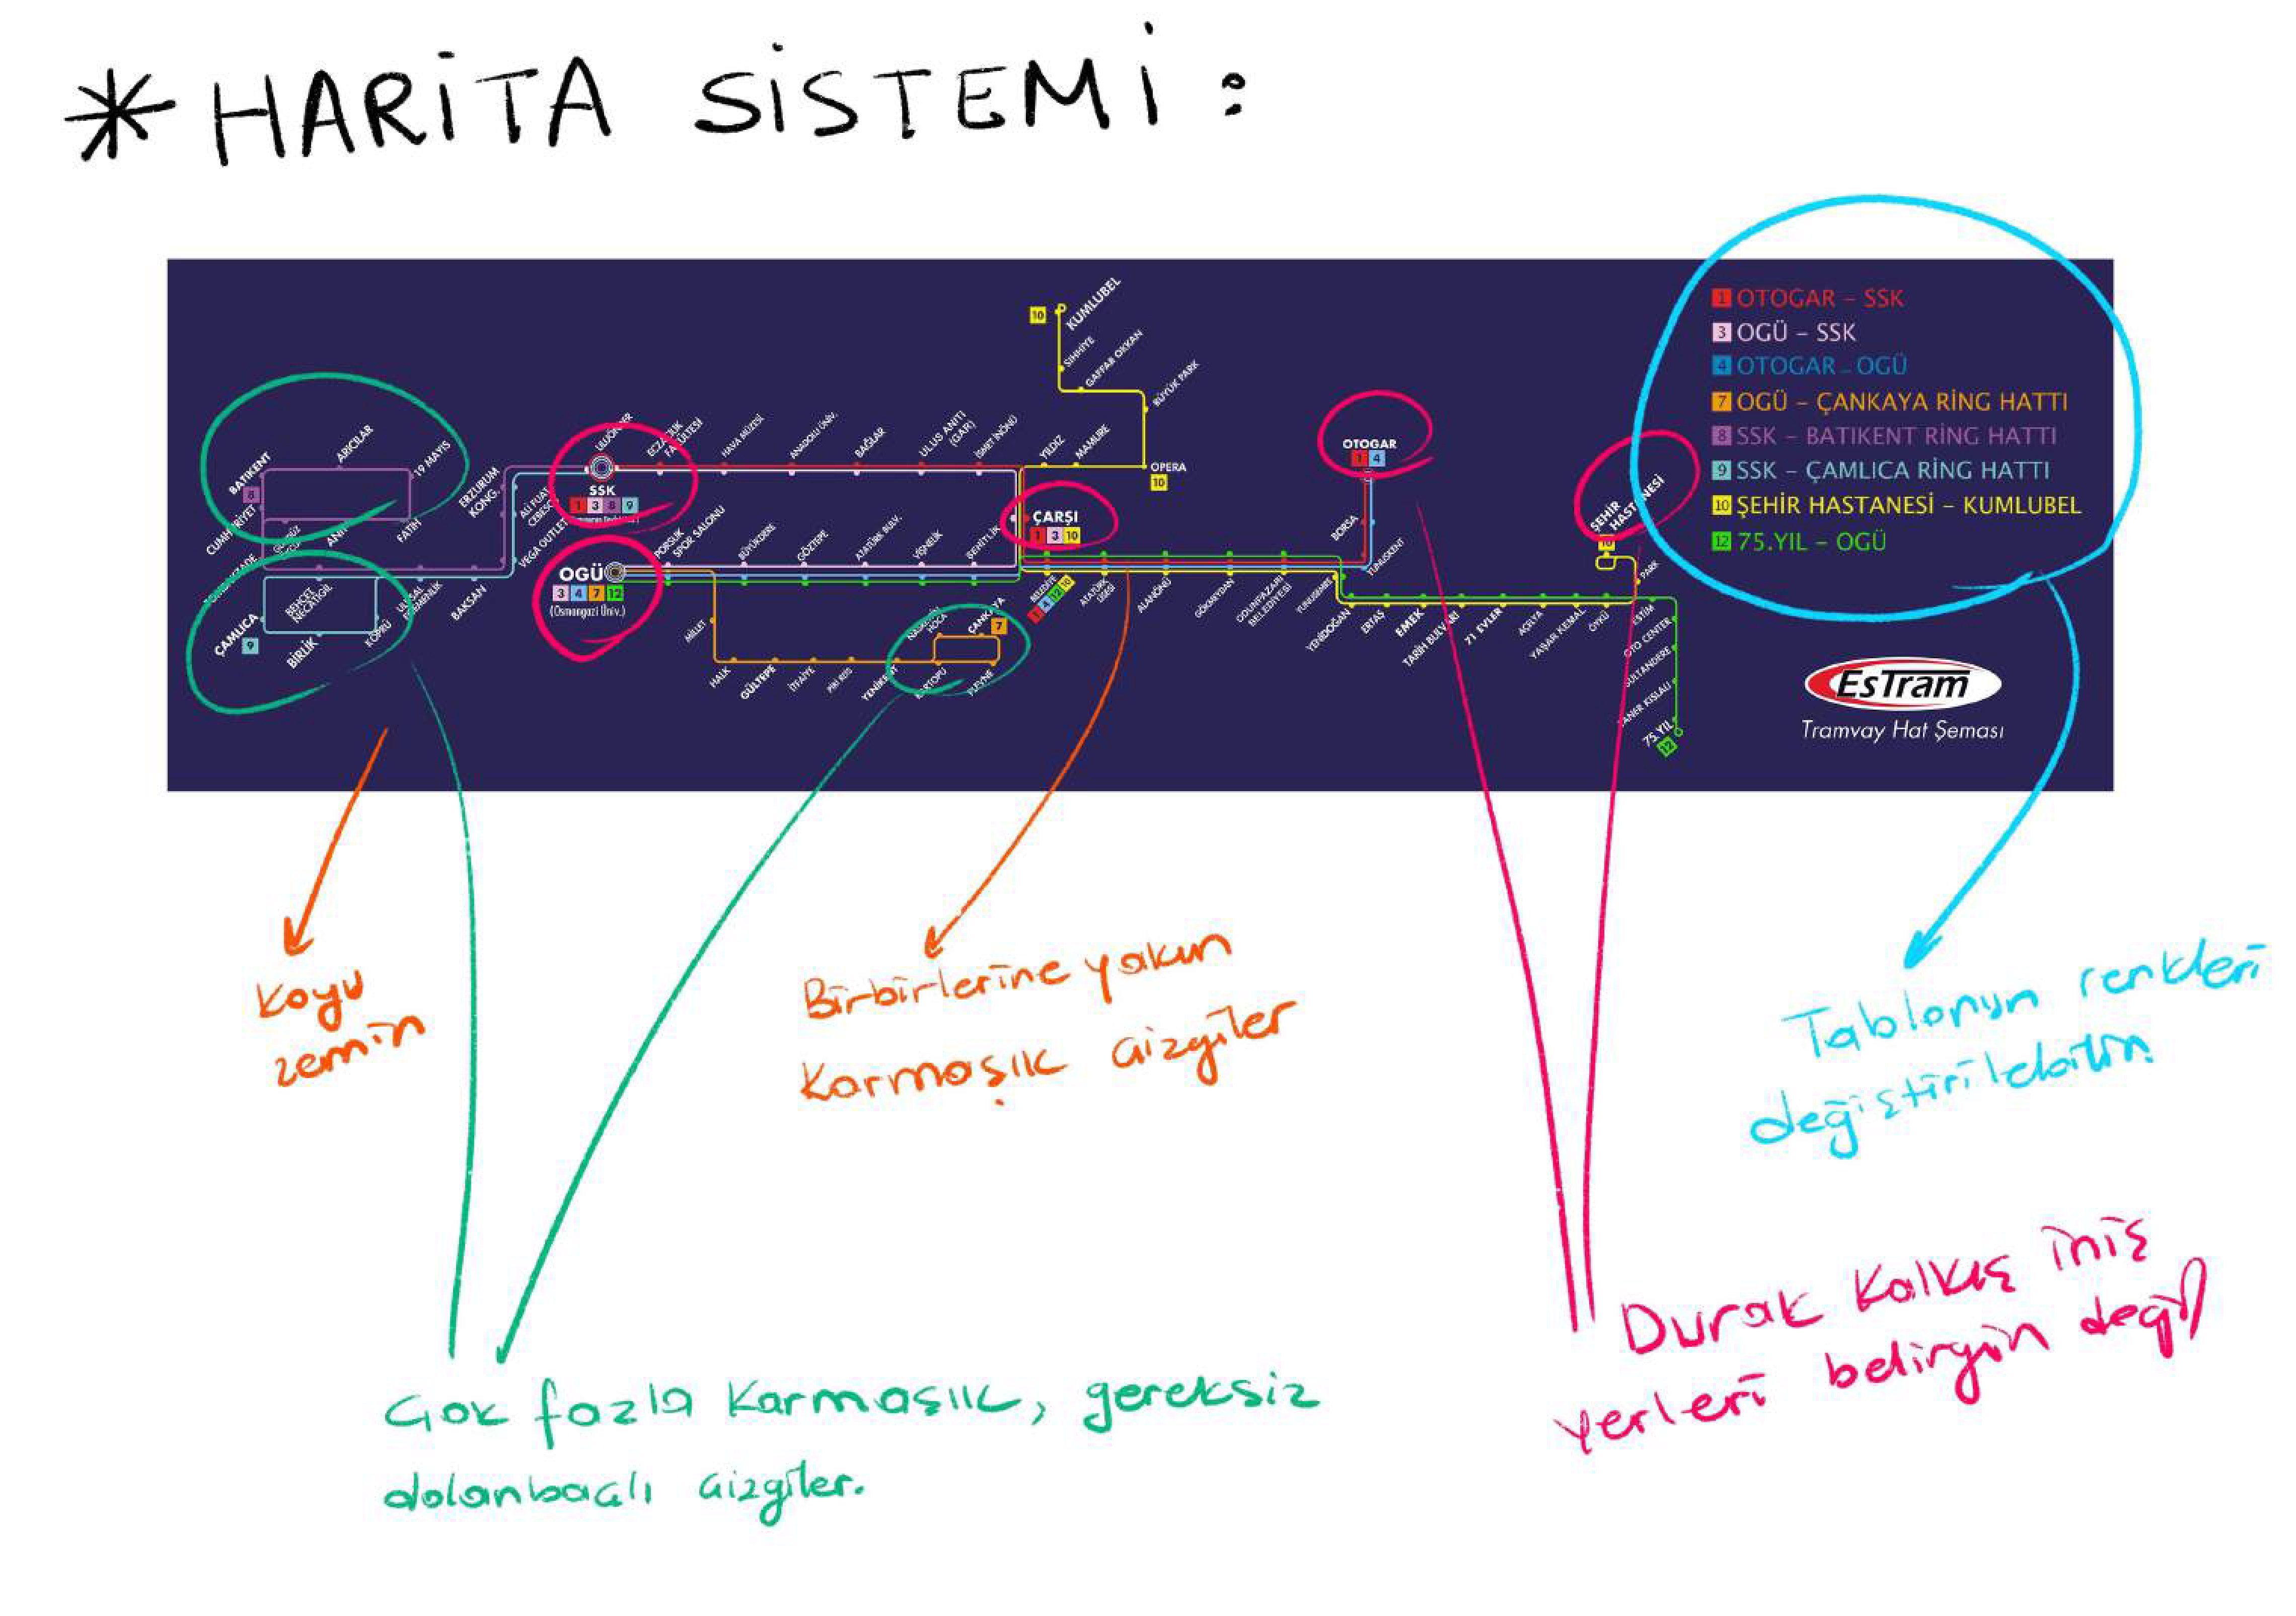 * HARİTA SİSTEMİ :
KUMLUBEL
10
SIHHİYE
GAFFAR OKKAN
BÜYÜK PARK
1 OTOGAR – SSK
3 OGÜ – SSK
4 OTOGAR – OGÜ
7 OGÜ – ÇANKAYA RİNG HATTI
8 SSK – BATIKENT RİNG HATTI
9 SSK – ÇAMLICA RİNG HATTI
10 ŞEHİR HASTANESİ – KUMLUBEL
12 75.YIL – OGÜ
BATIKENT
8
ARICILAR
19 MAYIS
CUMHURİYET
FATİH
ERZURUM
KONG.
ALİ FUAT
CEBESOY
VEGA OUTLET
SSK
1 3 8 9
ECZACILIK
FAKÜLTESİ
HAVA MÜZESİ
ANADOLU ÜNİV.
BAĞLAR
ULUS ANITI
(GAR)
İSMET İNÖNÜ
YILDIZ
MAMURE
OPERA
10
OTOGAR
1 4
ŞEHİR
HASTANESİ
10
ÇARŞI
1 3 10
OGÜ
3 4 7 12
(Osmangazi Üniv.)
PORSUK
SPOR SALONU
BÜYÜKDERE
GÖZTEPE
ATATÜRK BULV.
VİŞNELİK
ŞEHİTLİK
BORSA
YUNUSKENT
PARK
ÇAMLICA
9
BEHÇET
NECATİGİL
BİRLİK
KÖPRÜ
ULUSAL
EGEMENLİK
BAKSAN
MİLLET
HALK
GÜLTEPE
İTFAİYE
PİRİ REİS
YENİKENT
KARTOPU
PLEVNE
ÇANKAYA
7
NASREDDİN
HOCA
BELEDİYE
1 4 12 10
ATATÜRK
LİSESİ
ALANÖNÜ
GÖKMEYDAN
ODUNPAZARI
BELEDİYESİ
YUNUSEMRE
YENİDOĞAN
ERTAŞ
EMEK
TARİH BULVARI
71 EVLER
AGELYA
YAŞAR KEMAL
ÖYKÜ
ESTİM
OTO CENTER
SULTANDERE
TANER KIŞLALI
75.YIL
12
EsTram
Tramvay Hat Şeması
Koyu
zemin
Birbirlerine yakın
Karmaşık çizgiler
Tablonun renkleri
Durak Kalkış iniş
yerleri belirgin değil
Çok fazla Karmaşık, gereksiz
dolanbaçlı çizgiler.